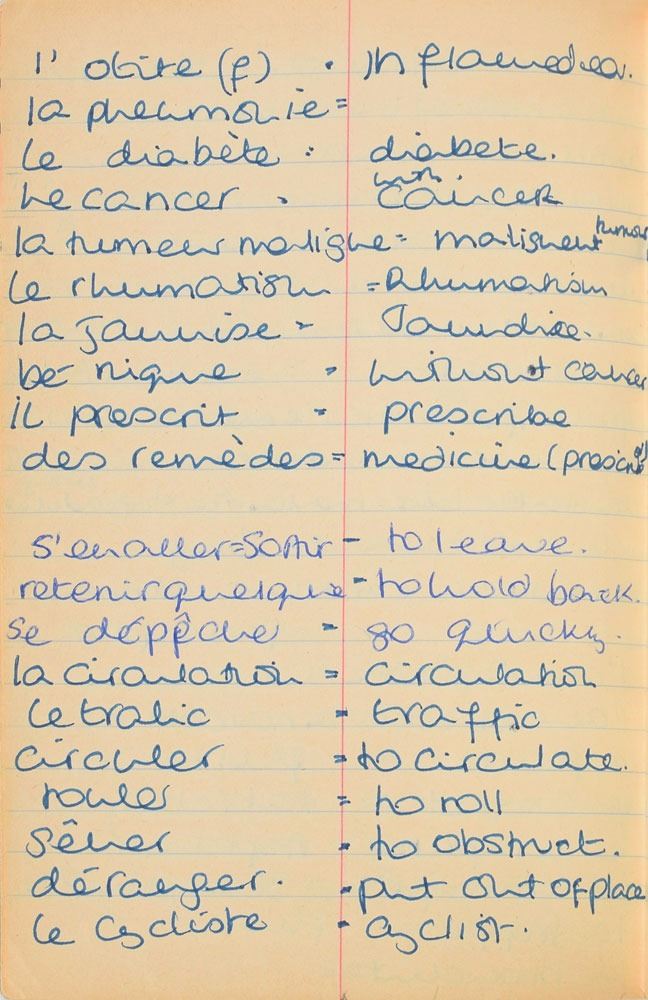 l' otite (f) . Inflamed ear.
la pneumonie =
Le diabète : diabete.
with
Le cancer . cancer
la tumeur maligne = malignent tumour
Le rhumatism = Rhumatism
la jaunise = Jaundice.
bé nigne = without cancer
il prescrit = prescribe
des remèdes = medicine (prescrib
s'en aller = Sortir - to leave.
retenir quelque - to hold back.
se dépêche = go quickly.
la circulation = circulation
Le trafic = traffic
circuler = to circulate.
rouler = to roll
gêner = to obstruct.
déranger. - put out of place
le cycliste = cyclist.